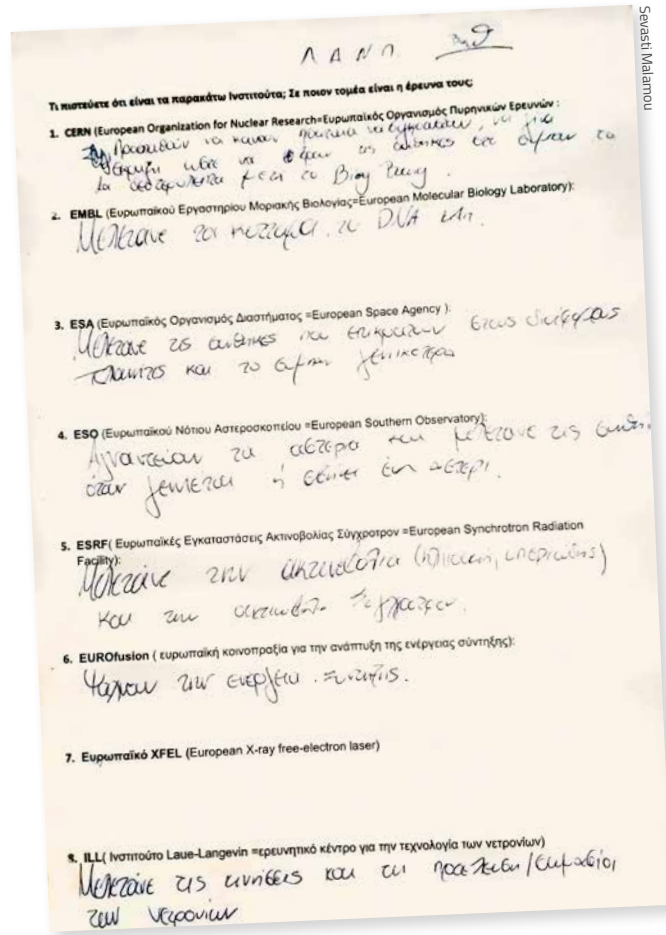 Sevasti Malamou
ΛΑΝΠ
Τι πιστεύετε ότι είναι τα παρακάτω Ινστιτούτα; Σε ποιον τομέα είναι η έρευνα τους;
1. CERN (European Organization for Nuclear Research=Ευρωπαϊκός Οργανισμός Πυρηνικών Ερευνών :
Προσπαθούν να κάνουν
να τις
δευτερόλεπτα μετά το Bing Bang.
2. EMBL (Ευρωπαϊκού Εργαστηρίου Μοριακής Βιολογίας=European Molecular Biology Laboratory):
Μελετάνε τα κύτταρα, το DNA κλπ.
3. ESA (Ευρωπαϊκός Οργανισμός Διαστήματος =European Space Agency ):
Μελετάνε τις συνθήκες που επικρατούν στους διάφορους
πλανήτες και το σύμπαν γενικότερα
4. ESO (Ευρωπαϊκού Νότιου Αστεροσκοπείου =European Southern Observatory):
τα αστέρια και μελετάνε τις
όταν γεννιέται ή σβήνει ένα αστέρι.
5. ESRF( Ευρωπαϊκές Εγκαταστάσεις Ακτινοβολίας Σύγχροτρον =European Synchrotron Radiation
Facility):
Μελετάνε την ακτινοβολία (ηλιακή, υπεριώδης)
και την ακτινοβολία
6. EUROfusion ( ευρωπαϊκή κοινοπραξία για την ανάπτυξη της ενέργειας σύντηξης):
Ψάχνουν την ενέργεια σύντηξης.
7. Ευρωπαϊκό XFEL (European X-ray free-electron laser)
8. ILL( Ινστιτούτο Laue-Langevin =ερευνητικό κέντρο για την τεχνολογία των νετρονίων)
Μελετάνε τις κινήσεις και τη
των νετρονίων